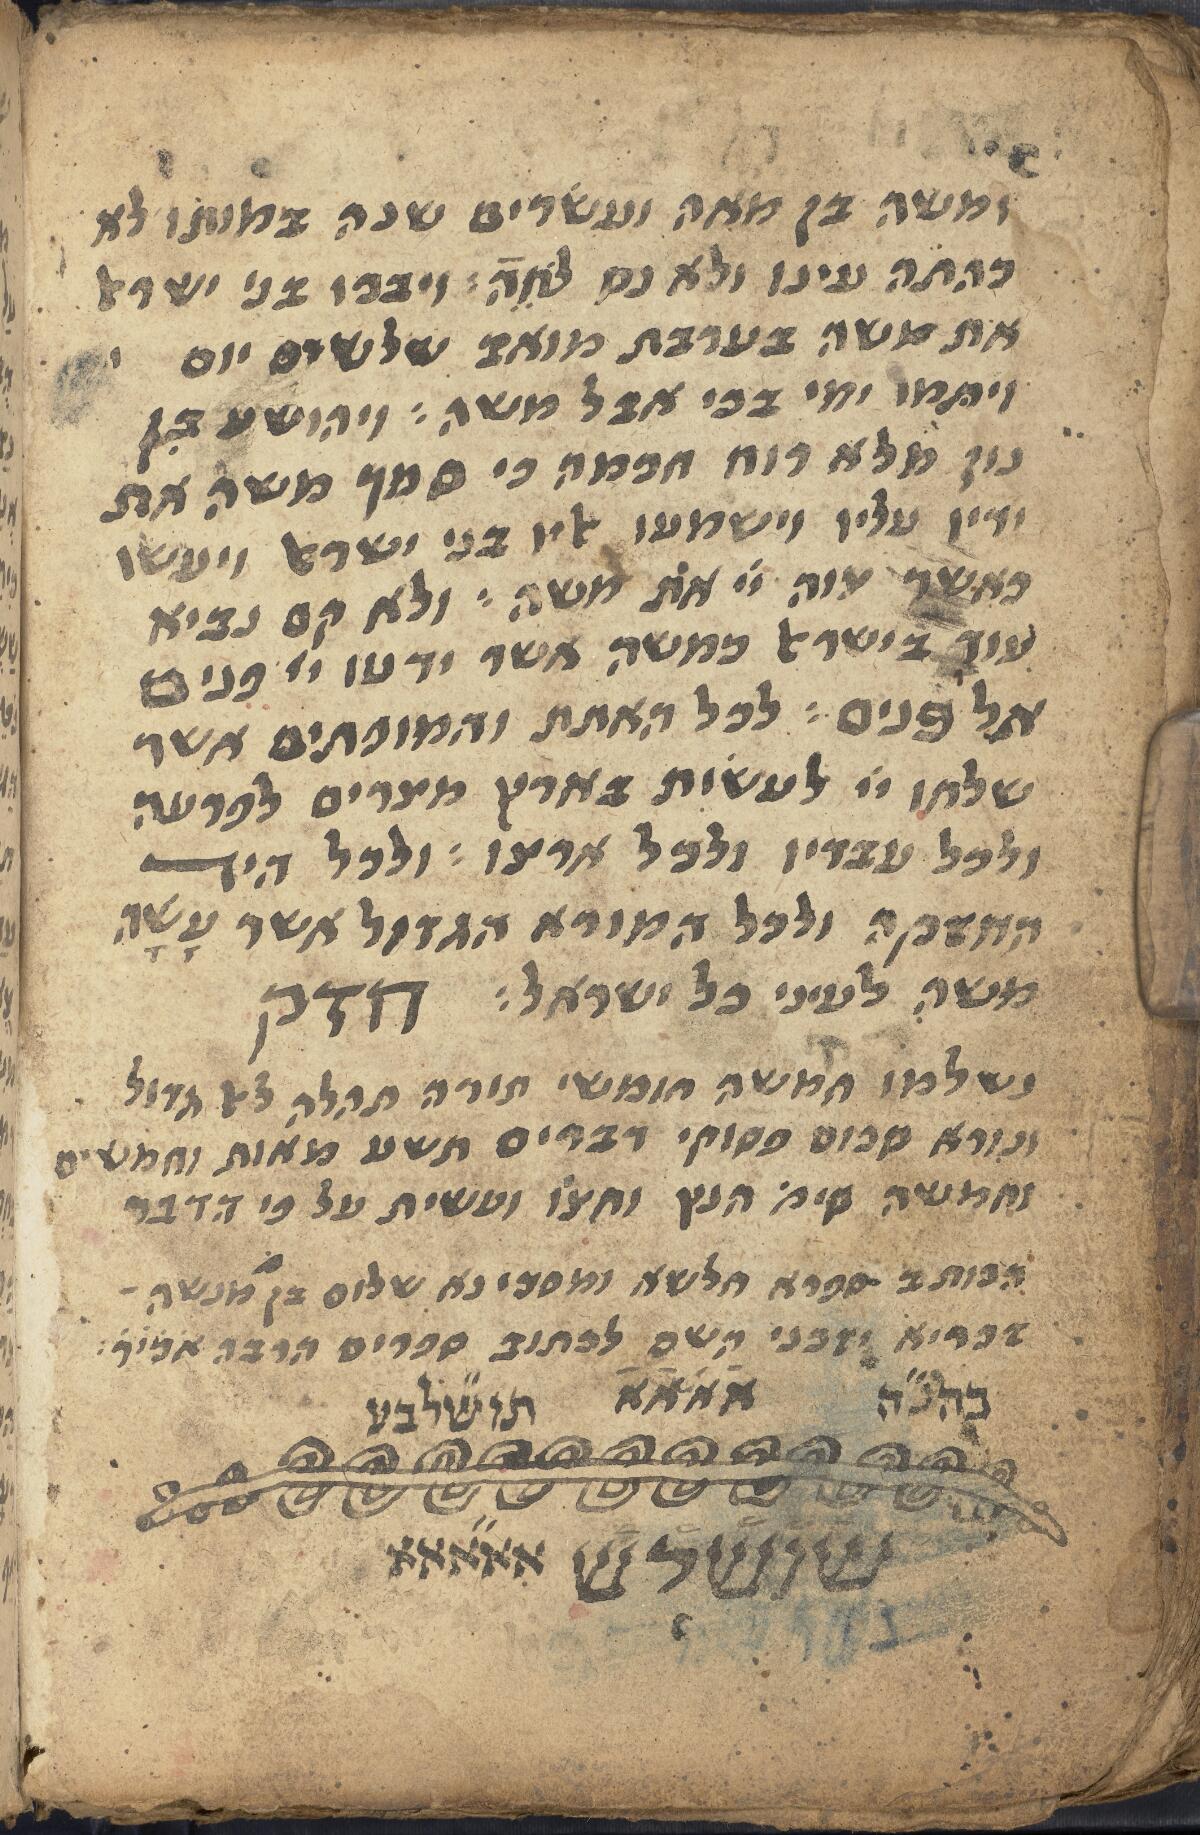 ומשה בן מאה ועשרים שנה במותו לא
כהתה עינו ולא נס לחה׃ ויבכו בני ישראל
את משה בערבת מואב שלשים יום י
ויתמו ימי בכי אבל משה׃ ויהושע בן
נון מלא רוח חכמה כי סמך משה את
ידיו עליו וישמעו אליו בני ישראל ויעשו
כאשר צוה יי את משה׃ ולא קם נביא
עוד בישראל כמשה אשר ידעו יי פנים
אל פנים׃ לכל האתת והמופתים אשר
שלחו יי לעשות בארץ מצרים לפרעה
ולכל עבדיו ולכל ארצו׃ ולכל היד
החזקה ולכל המורא הגדול אשר עָשָה
משה לעיני כל ישראל׃ חזק
נשלמו חמשה חומשי תורה תהלה לאל גדול
ונורא סכום פסוקי דברים תשע מאות וחמשים
וחמשה סימ׳ הנץ וחציו ועשית על פי הדבר
הכותב ספרא חלשא ומסכינא שלום בן מנשה
זכריא יזכני השם לכתוב ספרים הרבה אכי״ר׃
בהנ״ה אאאא תושלבע
שושלש אאאאא